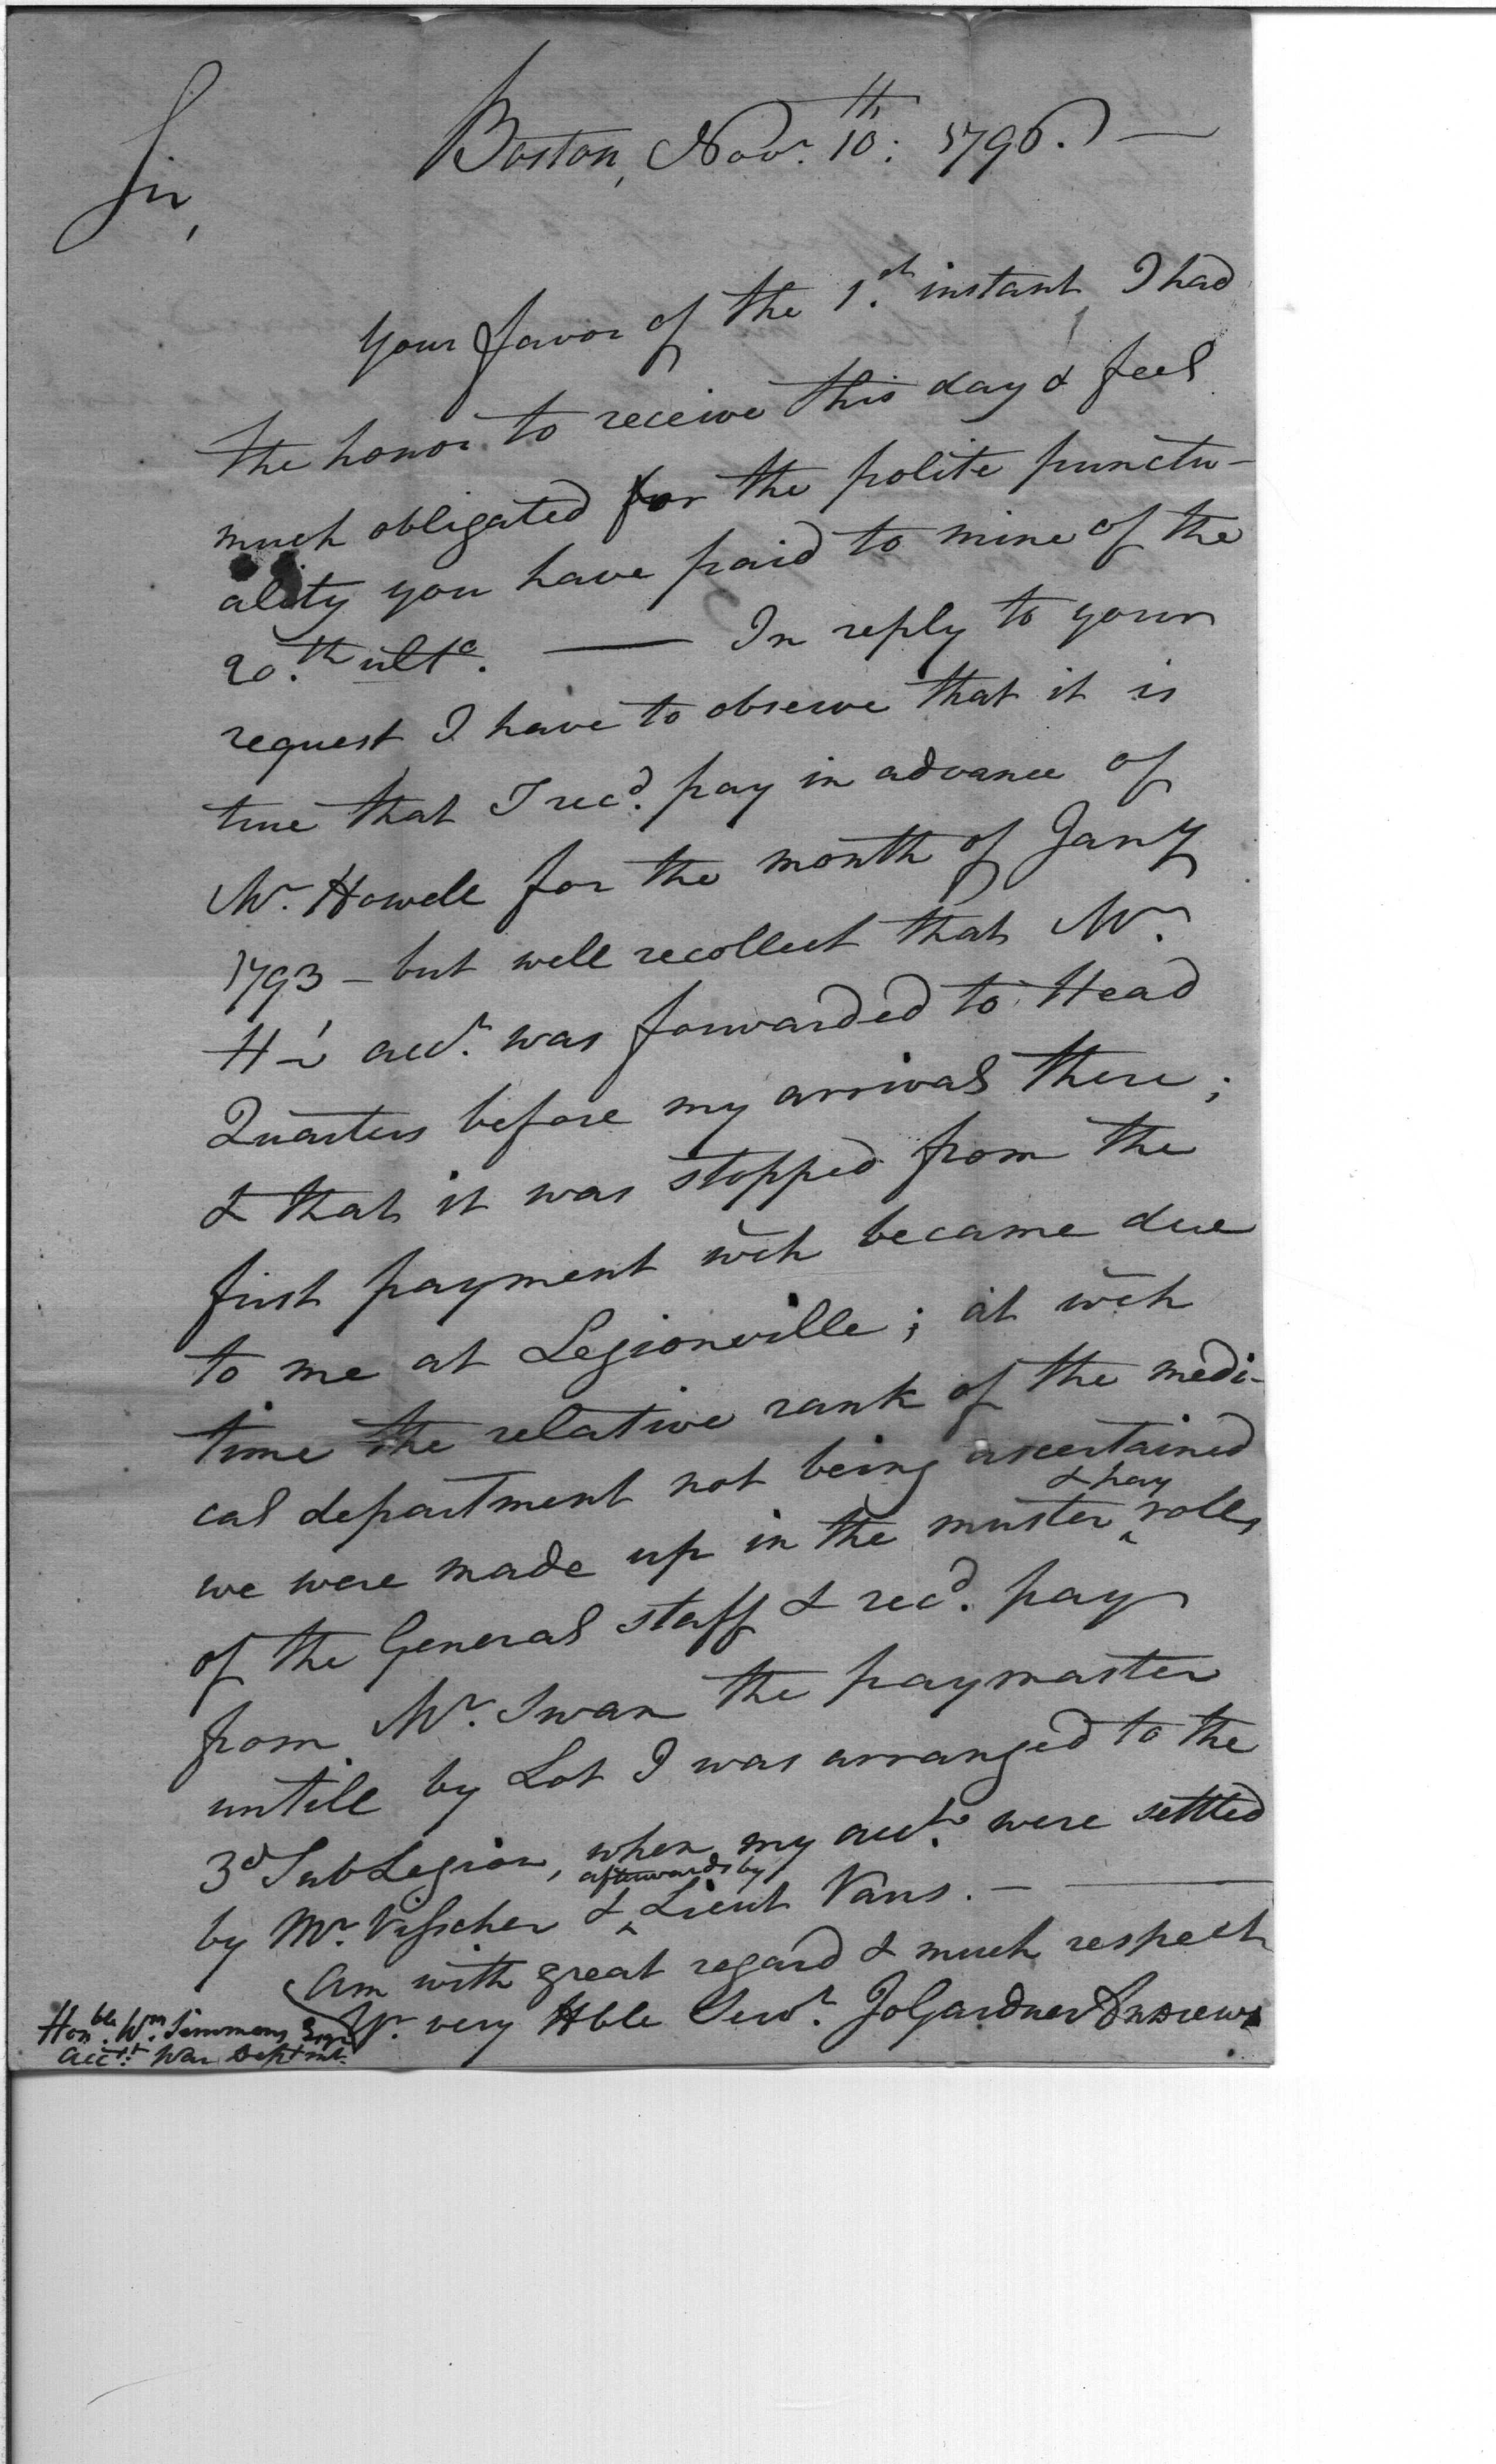 Boston, Novr. 10th: 1796. —
Sir,
Your favor of the 1st. instant, I had
the honor to receive this day & feel
much obligated for the polite punctu-
ality you have paid to mine of the
20.th ulto. — In reply to your
request I have to observe that it is
true that I recd. pay in advance of
Mr. Howell for the month of Jany
1793 – but well recollect that Mr.
H–'s acct. was forwarded to Head
Quarters before my arrival there;
& that it was stopped from the
first payment wch became due
to me at Legionville; at wch
time the relative rank of the medi-
cal department not being ascertained
& pay
we were made up in the muster ^ rolls
of the General staff & recd. pay
from Mr. Swan the paymaster
untill by Lot I was arranged to the
3d Sub Legion, when my accts. were settled
afterwards by
by Mr. Visscher & ^ Lieut Vans. — —
Am with great regard & much respect
Yr. very Hble Servt. Jo Gardner Andrews
Honble. Wm. Simmons Esqr
Acctt: War Deptmt.